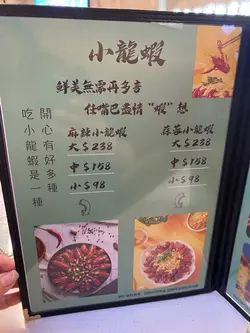 小龍蝦
鮮美無需再多言
任嘴巴盡情“蝦”想
開心有好多種
吃小龍蝦是一種
麻辣小龍蝦
大 $238
中 $158
小 $98
蒜蓉小龍蝦
大 $238
中 $158
小 $98